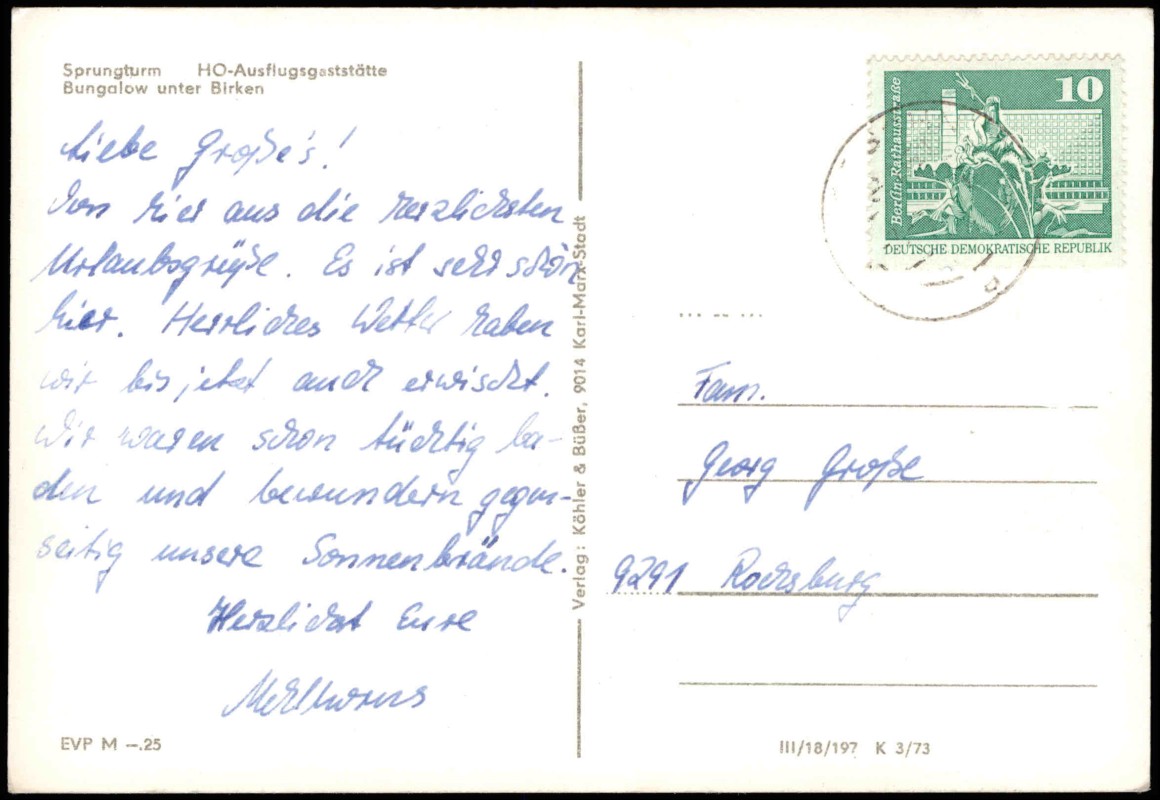 Sprungturm HO-Ausflugsgaststätte
Bungalow unter Birken
Liebe Große's!
Von hier aus die herzlichsten
Urlaubsgrüße. Es ist sehr schön
hier. Herrliches Wetter haben
wir bis jetzt auch erwischt.
Wir waren schon tüchtig ba-
den und bewundern gegen-
seitig unsere Sonnenbrände.
Herzlichst Eure
Mehlhorns
EVP M –.25
Verlag: Köhler & Büßer, 9014 Karl-Marx-Stadt
10
Berlin-Rathausstraße
DEUTSCHE DEMOKRATISCHE REPUBLIK
Fam.
Georg Große
9291 Rochsburg
III/18/197 K 3/73